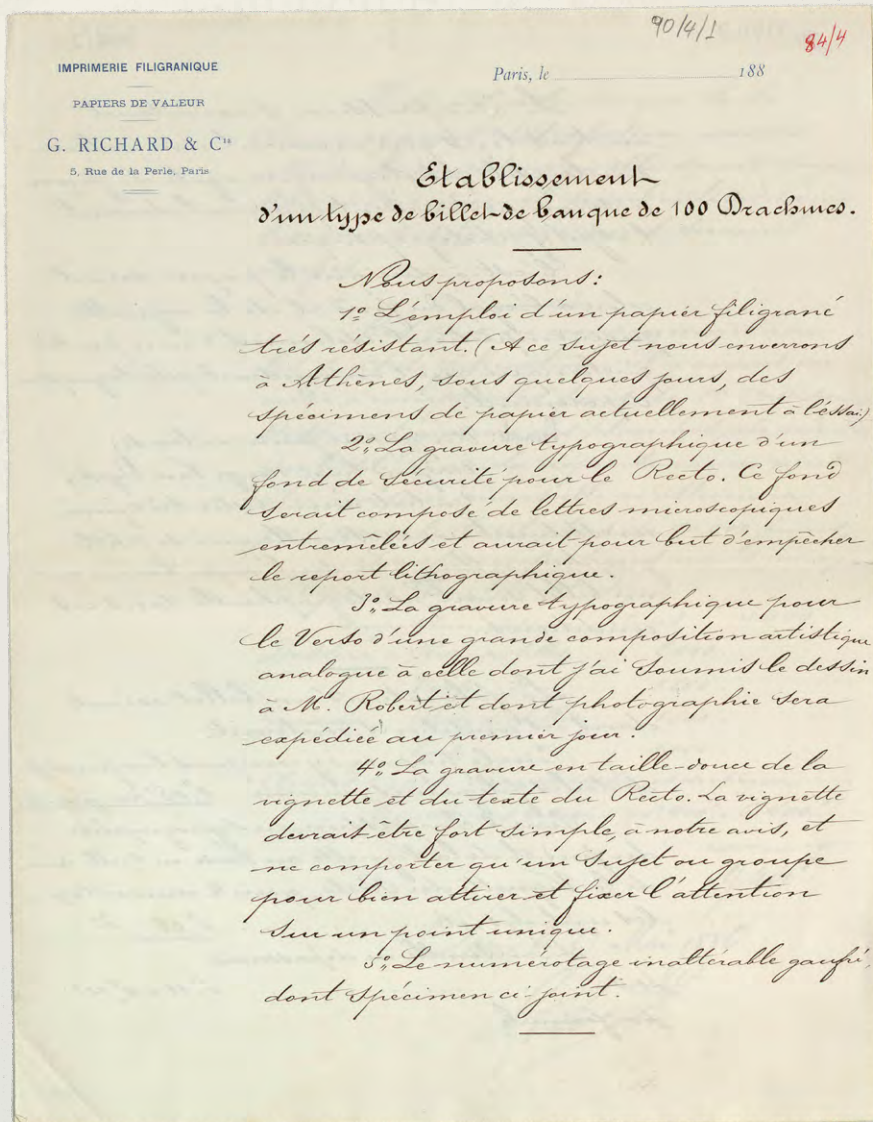 90/4/1
84/4
IMPRIMERIE FILIGRANIQUE
PAPIERS DE VALEUR
G. RICHARD & Cie
5, Rue de la Perle, Paris
Paris, le 188
Etablissement
d'un type de billet de banque de 100 Drachmes.
Nous proposons:
1º L'emploi d'un papier filigrané
trés résistant. (A ce sujet nous enverrons
à Athènes, sous quelques jours, des
spécimens de papier actuellement à l'éssai.)
2º La gravure typographique d'un
fond de sécurité pour le Recto. Ce fond
serait composé de lettres microscopiques
entremêlées et aurait pour but d'empêcher
le report lithographique.
3º La gravure typographique pour
le Verso d'une grande composition artistique
analogue à celle dont j'ai soumis le dessin
à M. Robert et dont photographie sera
expédiée au premier jour.
4º La gravure en taille-douce de la
vignette et du texte du Recto. La vignette
devrait être fort simple, à notre avis, et
ne comporter qu'un sujet ou groupe
pour bien attirer et fixer l'attention
sur un point unique.
5º Le numérotage inaltérable gaufré,
dont spécimen ci-joint.